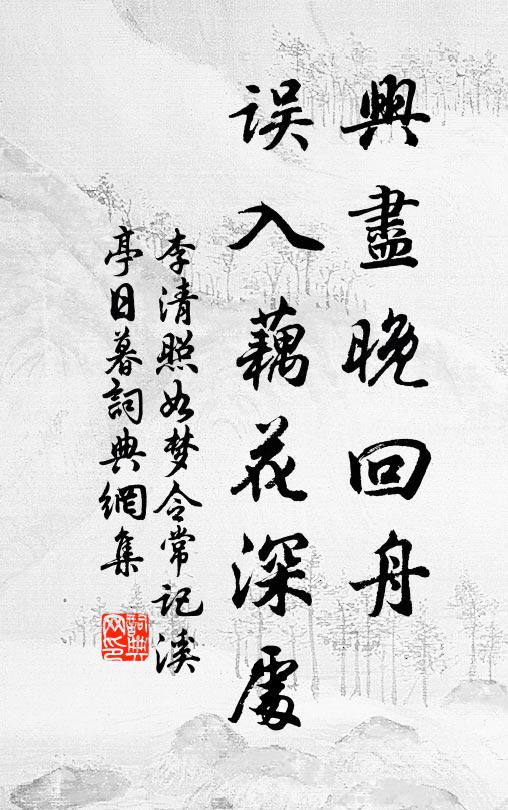 興盡晚回舟
误入藕花深處
李清照如梦令常记溪
亭日暮詞典網集
詞典网印